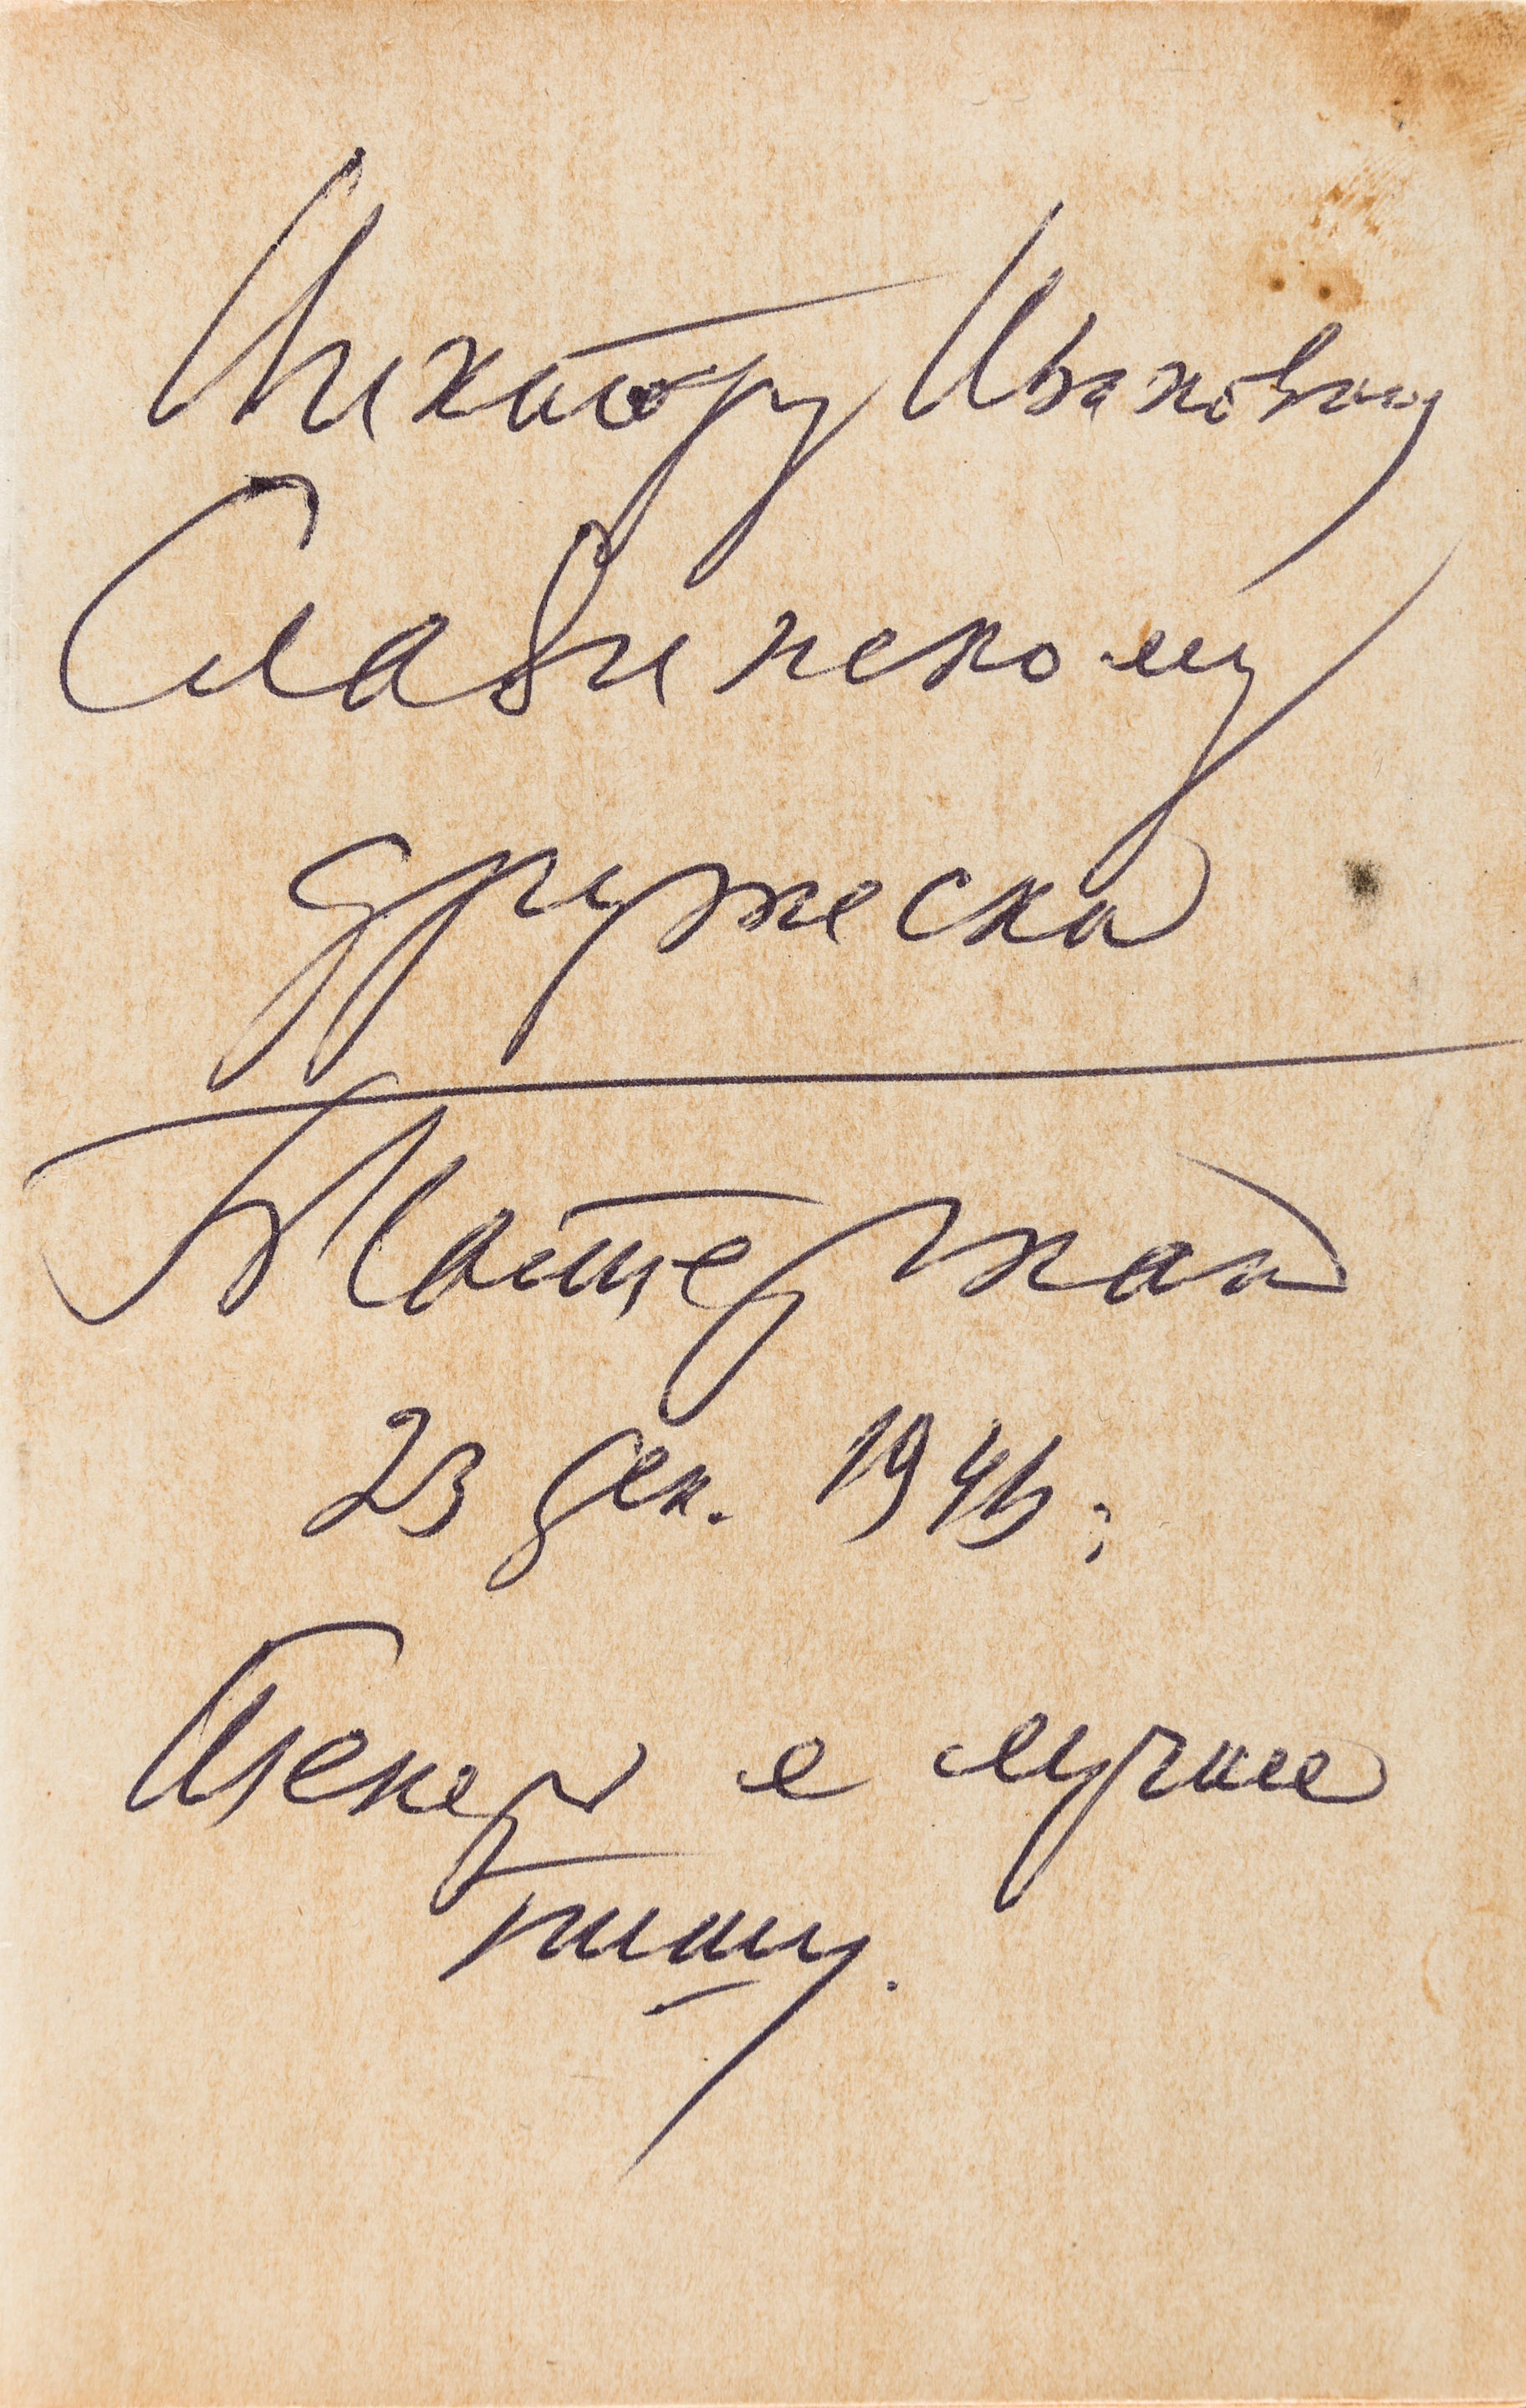 Виктору Ивановичу
Славинскому
дружески
Б Пастернак
23 дек. 1946.
Теперь я лучше
пишу.